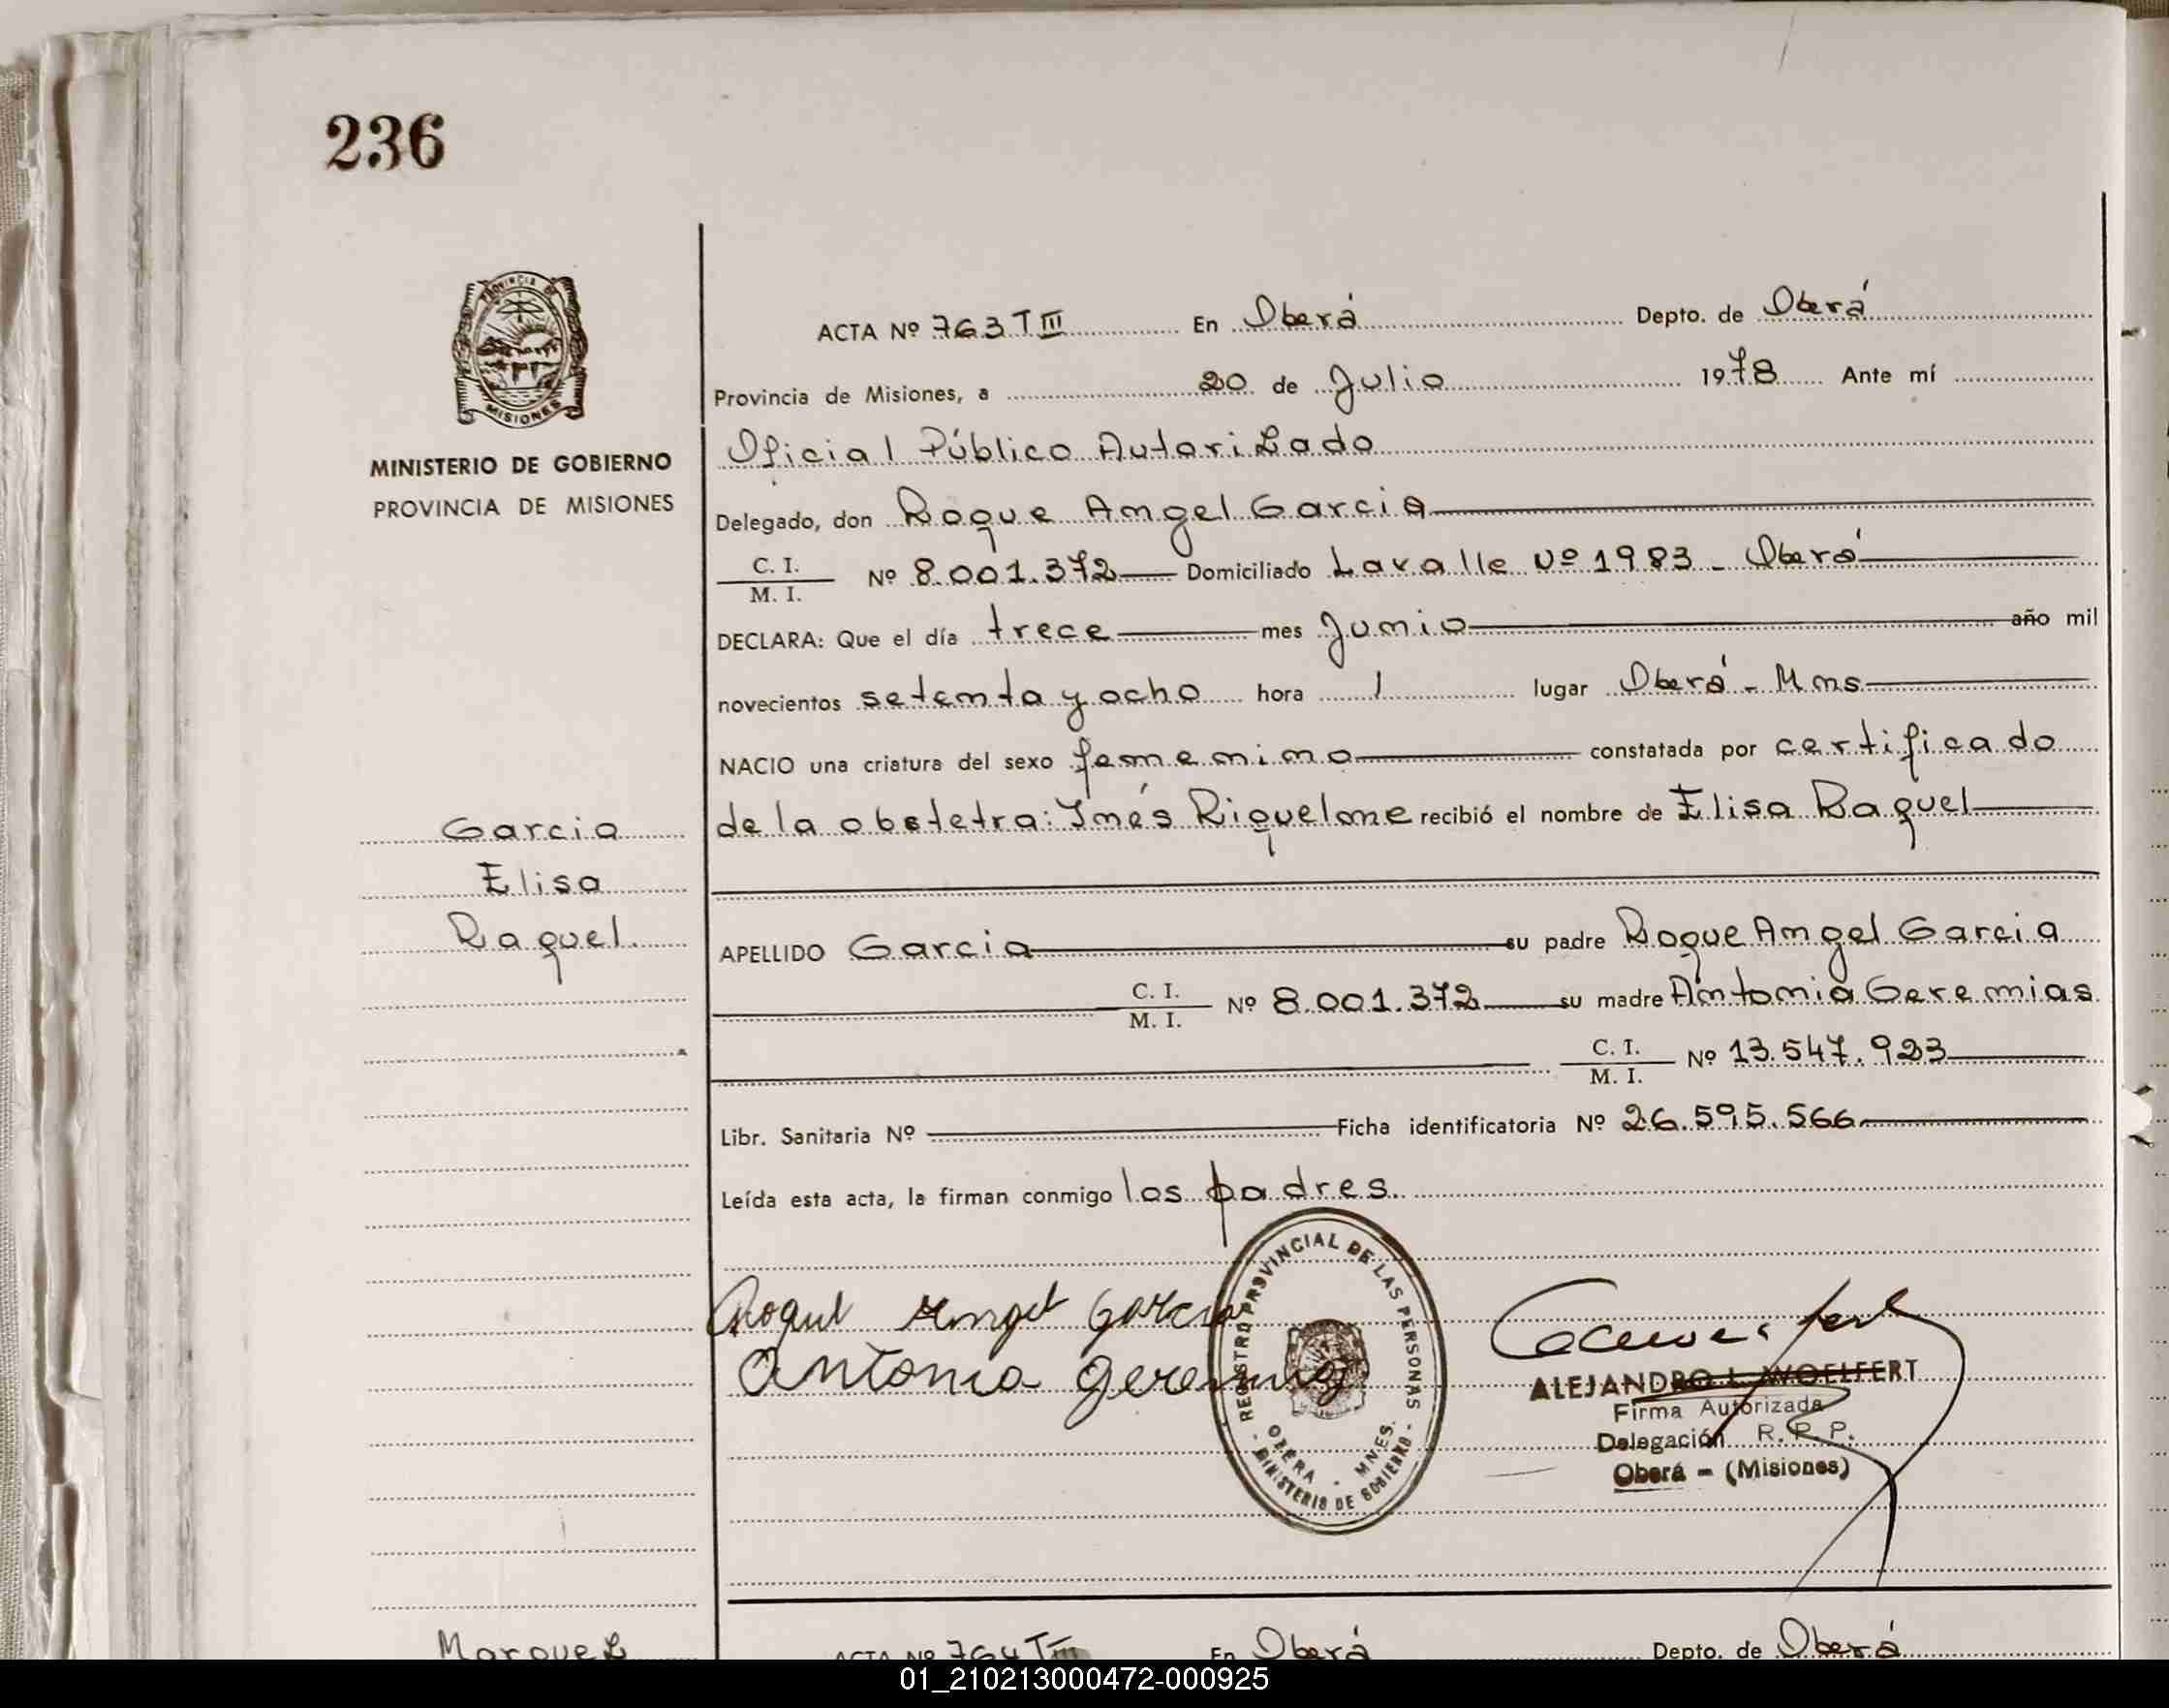 236
PROVINCIA DE
MISIONES
MINISTERIO DE GOBIERNO
PROVINCIA DE MISIONES
Garcia
Elisa
Raquel.
ACTA Nº 763 T III En Oberá Depto. de Oberá
Provincia de Misiones, a 20 de Julio 1978 Ante mí
Oficial Público Autorizado
Delegado, don Roque Angel Garcia
C. I.
M. I. Nº 8.001.372 Domiciliado Lavalle Nº 1983 - Oberá
DECLARA: Que el día trece mes Junio año mil
novecientos setenta y ocho hora 1 lugar Oberá - Mns
NACIO una criatura del sexo femenino constatada por certificado
de la obstetra: Inés Riquelme recibió el nombre de Elisa Raquel
APELLIDO Garcia su padre Roque Angel Garcia
C. I.
M. I. Nº 8.001.372 su madre Antonia Geremias
C. I.
M. I. Nº 13.547.923
Libr. Sanitaria Nº Ficha identificatoria Nº 26.595.566
Leída esta acta, la firman conmigo los padres.
Roque Angel Garcia
Antonia Geremias
REGISTRO PROVINCIAL DE LAS PERSONAS
OBERA - MNES.
- MINISTERIO DE GOBIERNO -
ALEJANDRO L. WOELFERT
Firma Autorizada
Delegación R. P. P.
Oberá - (Misiones)
Marquez
ACTA Nº 764 T III En Oberá Depto. de Oberá
01_210213000472-000925